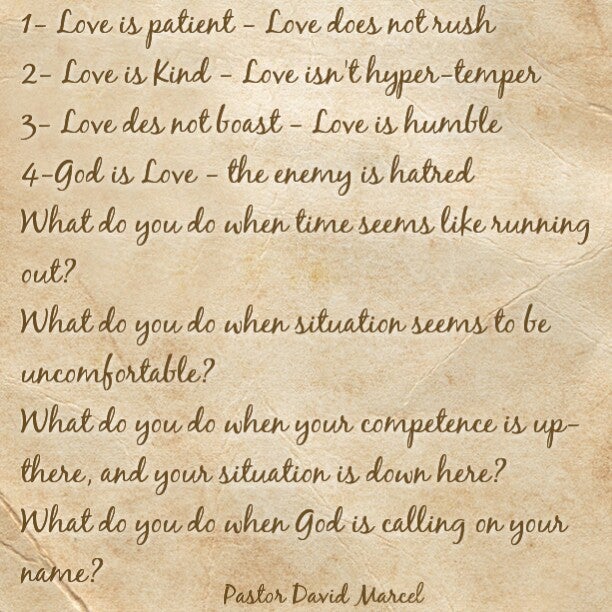 1- Love is patient - Love does not rush
2- Love is Kind - Love isn't hyper-temper
3- Love des not boast - Love is humble
4-God is Love - the enemy is hatred
What do you do when time seems like running
out?
What do you do when situation seems to be
uncomfortable?
What do you do when your competence is up-
there, and your situation is down here?
What do you do when God is calling on your
name?
Pastor David Marcel